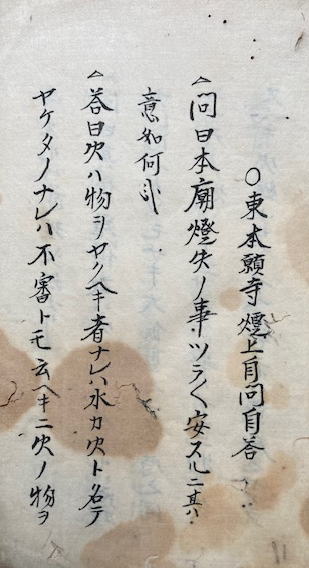 ○東本願寺煙上自問自答
△問曰本廟燈失ノ事ツラ〱安スルニ其ノ
意如何ン
△答曰火ハ物ヲヤクヘキ者ナレハ水カ火ト名テ
ヤケタノナレハ不審トモ云ヘキニ火ノ物ヲ